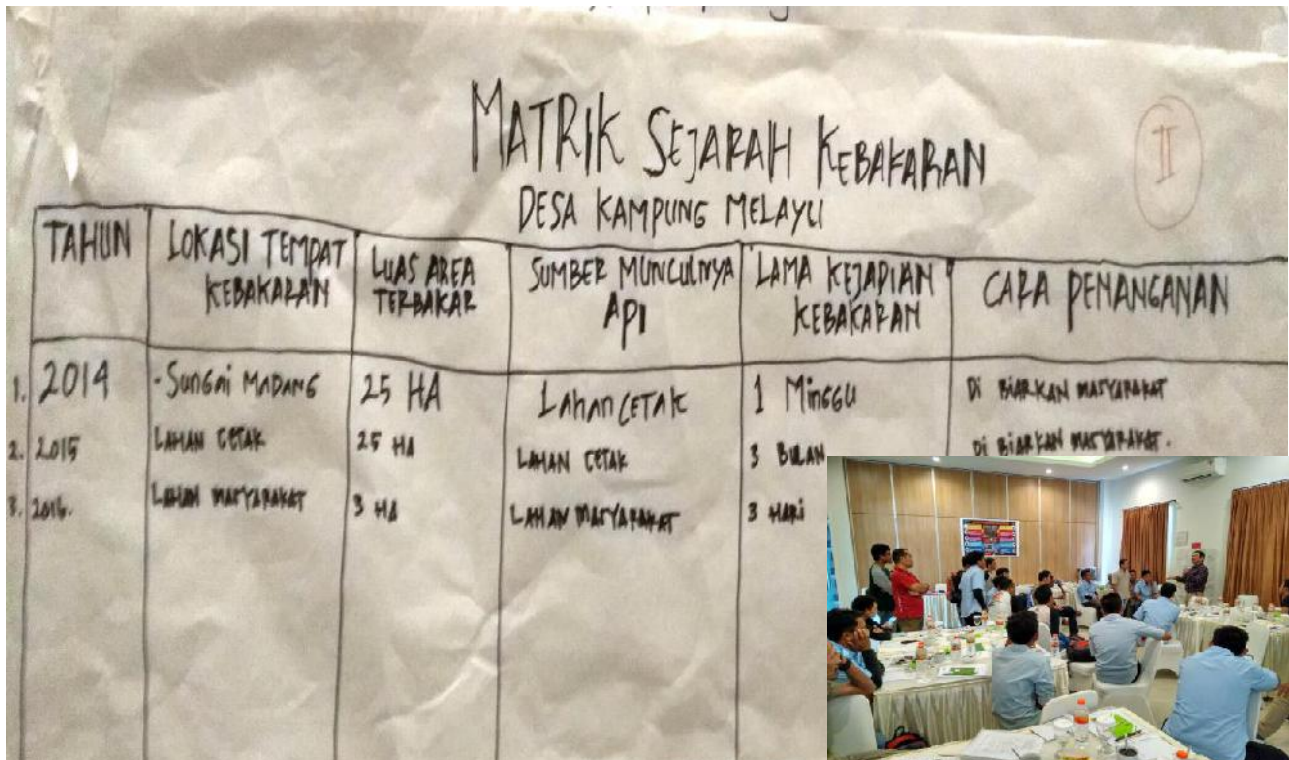 MATRIK SEJARAH KEBAKARAN
II
DESA KAMPUNG MELAYU
TAHUN
LOKASI TEMPAT
KEBAKARAN
LUAS AREA
TERBAKAR
SUMBER MUNCULNYA
API
LAMA KEJADIAN
KEBAKARAN
CARA PENANGANAN
1. 2014 - SUNGAI MADANG 25 HA LAHAN CETAK 1 MINGGU DI BIARKAN MASYARAKAT
2. 2015 LAHAN CETAK 25 HA LAHAN CETAK 3 BULAN DI BIARKAN MASYARAKAT.
3. 2016. LAHAN MASYARAKAT 3 HA LAHAN MASYARAKAT 3 HARI